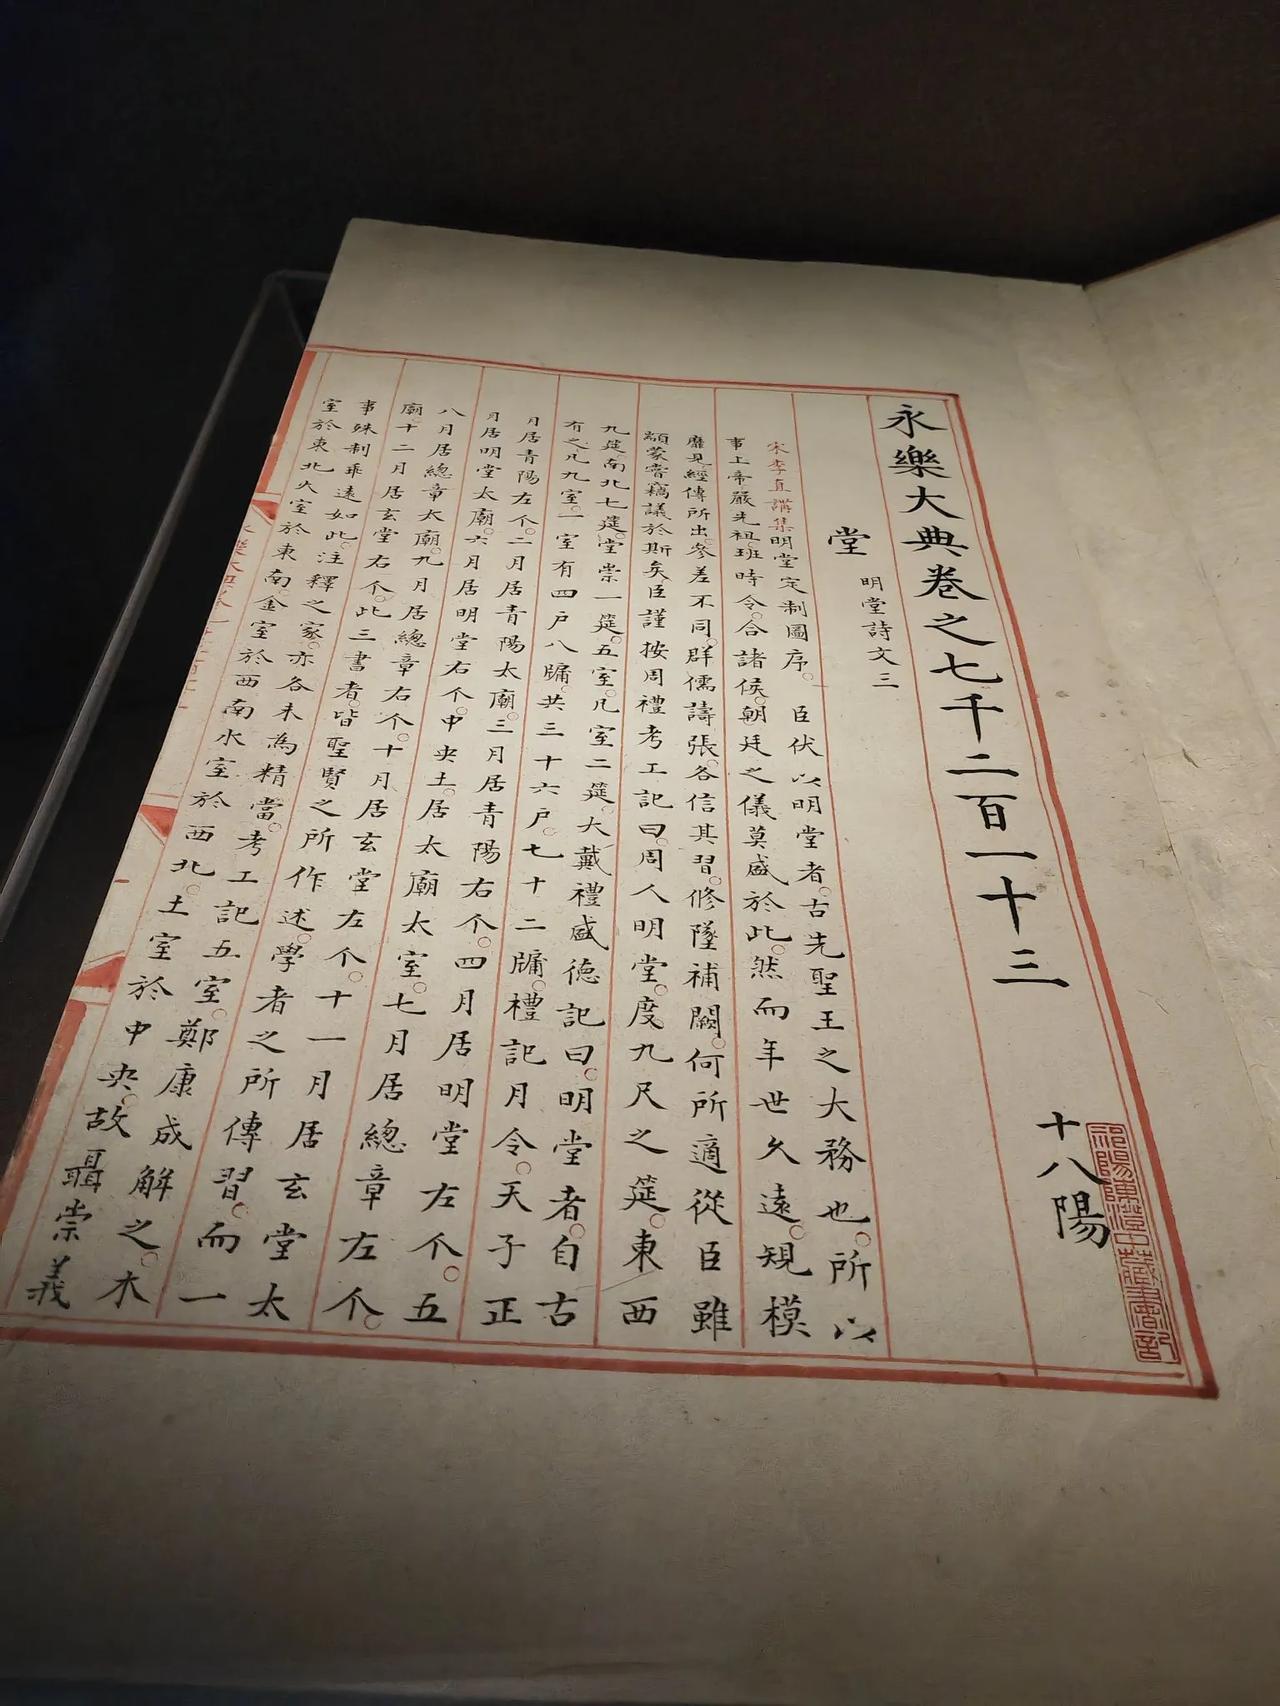 永樂大典卷之七千二百一十三
十八陽
祁陽陳澄中藏書記
堂
明堂詩文三
宋李直講集明堂定制圖序。臣伏以明堂者。古先聖王之大務也。所以
事上帝。嚴先祖。班時令。合諸侯。朝廷之儀莫盛於此。然而年世久遠。規模
靡見。經傳所出。參差不同。群儒譸張。各信其習。修墜補闕。何所適從。臣雖
顓蒙嘗竊議於斯矣。臣謹按周禮考工記曰。周人明堂。度九尺之筵。東西
九筵。南北七筵。堂崇一筵。五室。凡室二筵。大戴禮盛德記曰。明堂者。自古
有之。凡九室。一室有四戶八牖。共三十六戶。七十二牖。禮記月令。天子正
月居青陽左个。二月居青陽太廟。三月居青陽右个。四月居明堂左个。五
月居明堂太廟。六月居明堂右个。中央土。居太廟太室。七月居總章左个。
八月居總章太廟。九月居總章右个。十月居玄堂左个。十一月居玄堂太
廟。十二月居玄堂右个。此三書者。皆聖賢之所作述。學者之所傳習。而一
事殊制乖遠如此。注釋之家。亦各未為精當。考工記五室。鄭康成解之。木
室於東北。火室於東南。金室於西南。水室於西北。土室於中央。故聶崇義